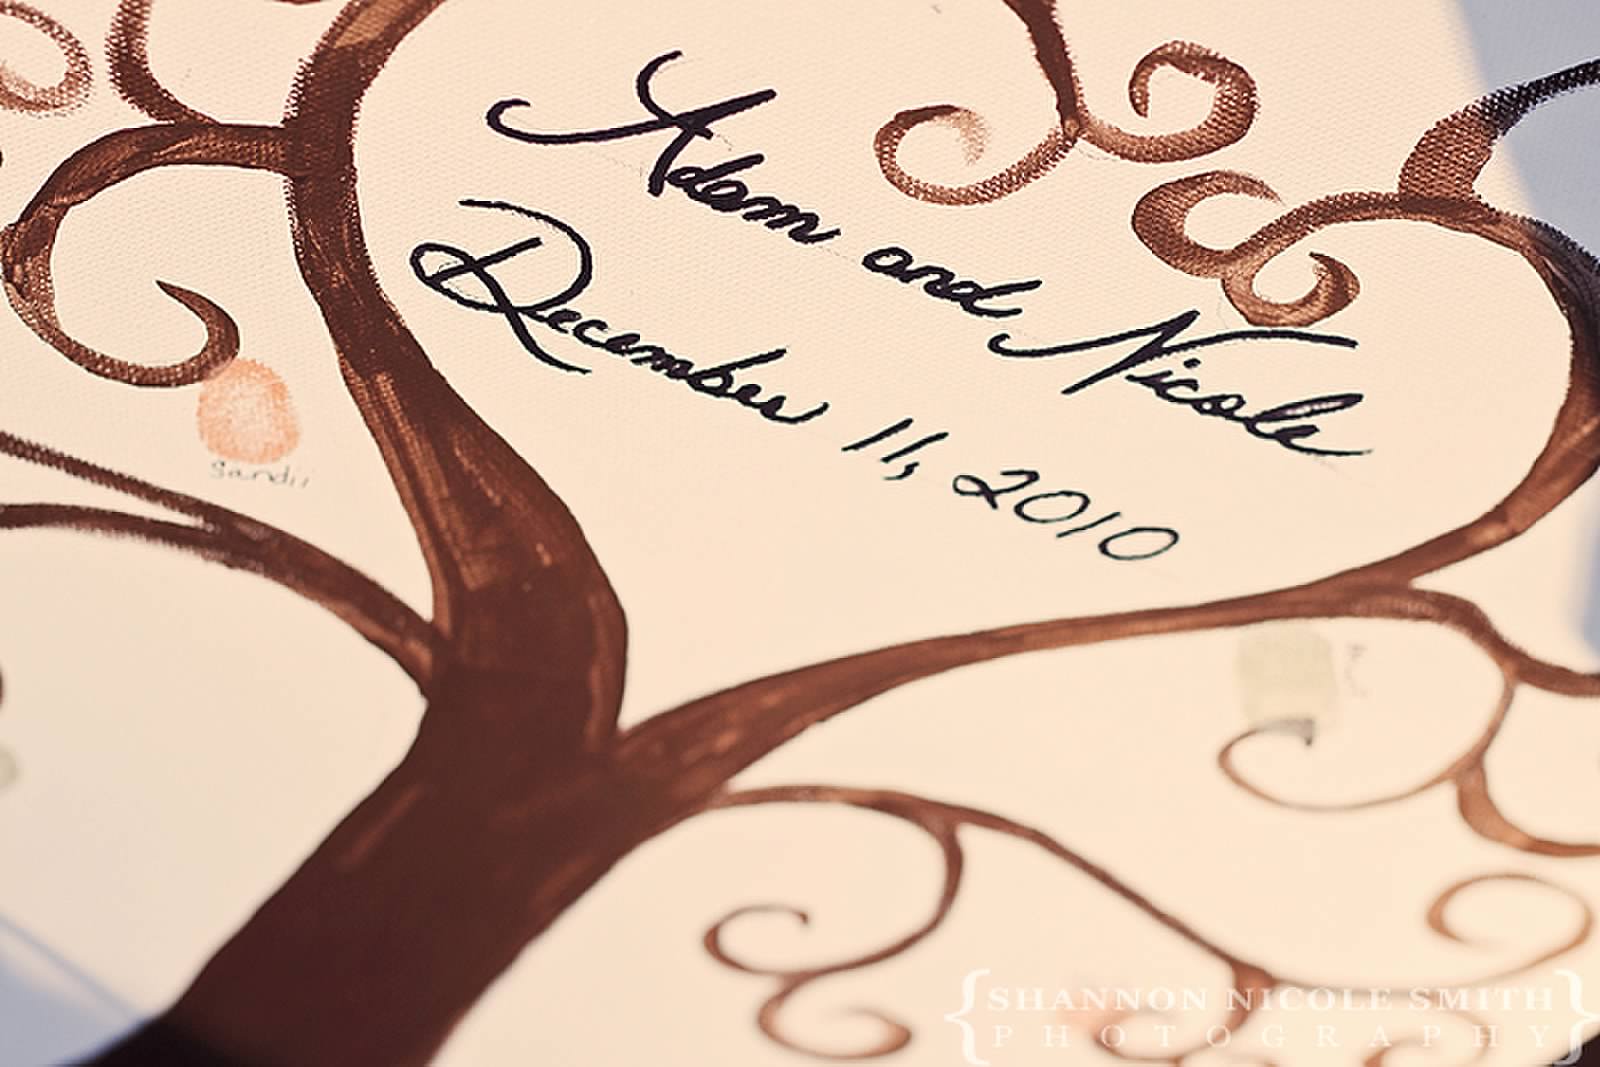 Adam and Nicole
December 11, 2010
Sandii
{SHANNON NICOLE SMITH
PHOTOGRAPHY}